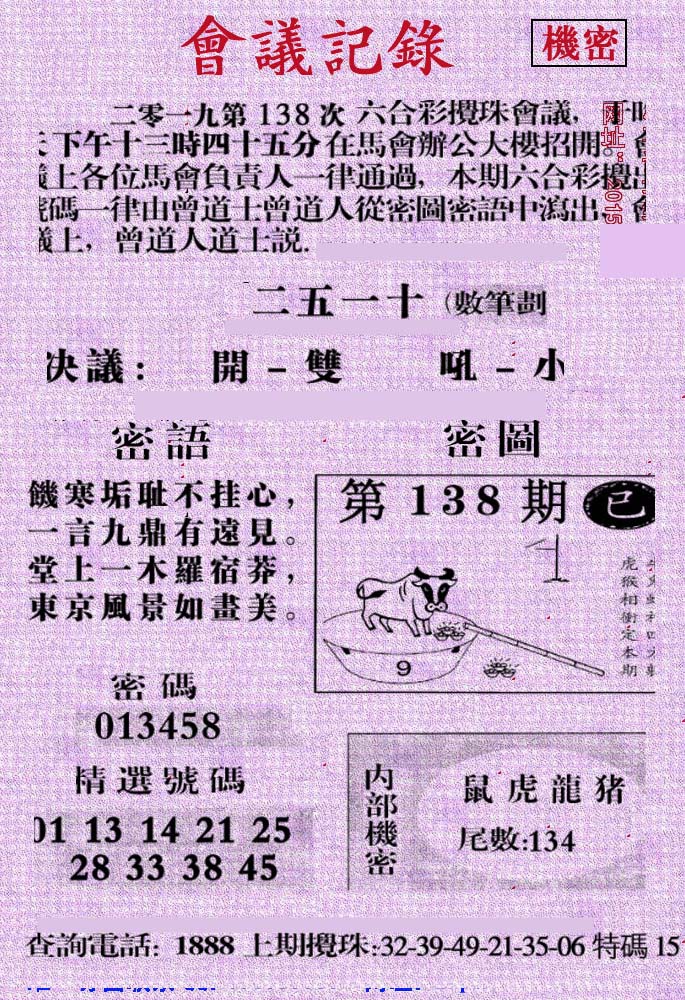 會議記錄
機密
二零一九第 138 次 六合彩攪珠會議,
下午十三時四十五分在馬會辦公大樓招開。
議上各位馬會負責人一律通過, 本期六合彩攪出
號碼一律由曾道士曾道人從密圖密語中瀉出,
議上, 曾道人道士説.
2015
二五一十 (數筆劃
决議: 開－雙 吼－小
密語
饑寒垢耻不挂心,
一言九鼎有遠見。
堂上一木羅宿莽,
東京風景如畫美。
密圖
第138期
9
虎猴相衝定本期
密碼
013458
精選號碼
01 13 14 21 25
28 33 38 45
内部機密
鼠虎龍猪
尾數:134
查詢電話: 1888 上期攪珠:32-39-49-21-35-06 特碼 15